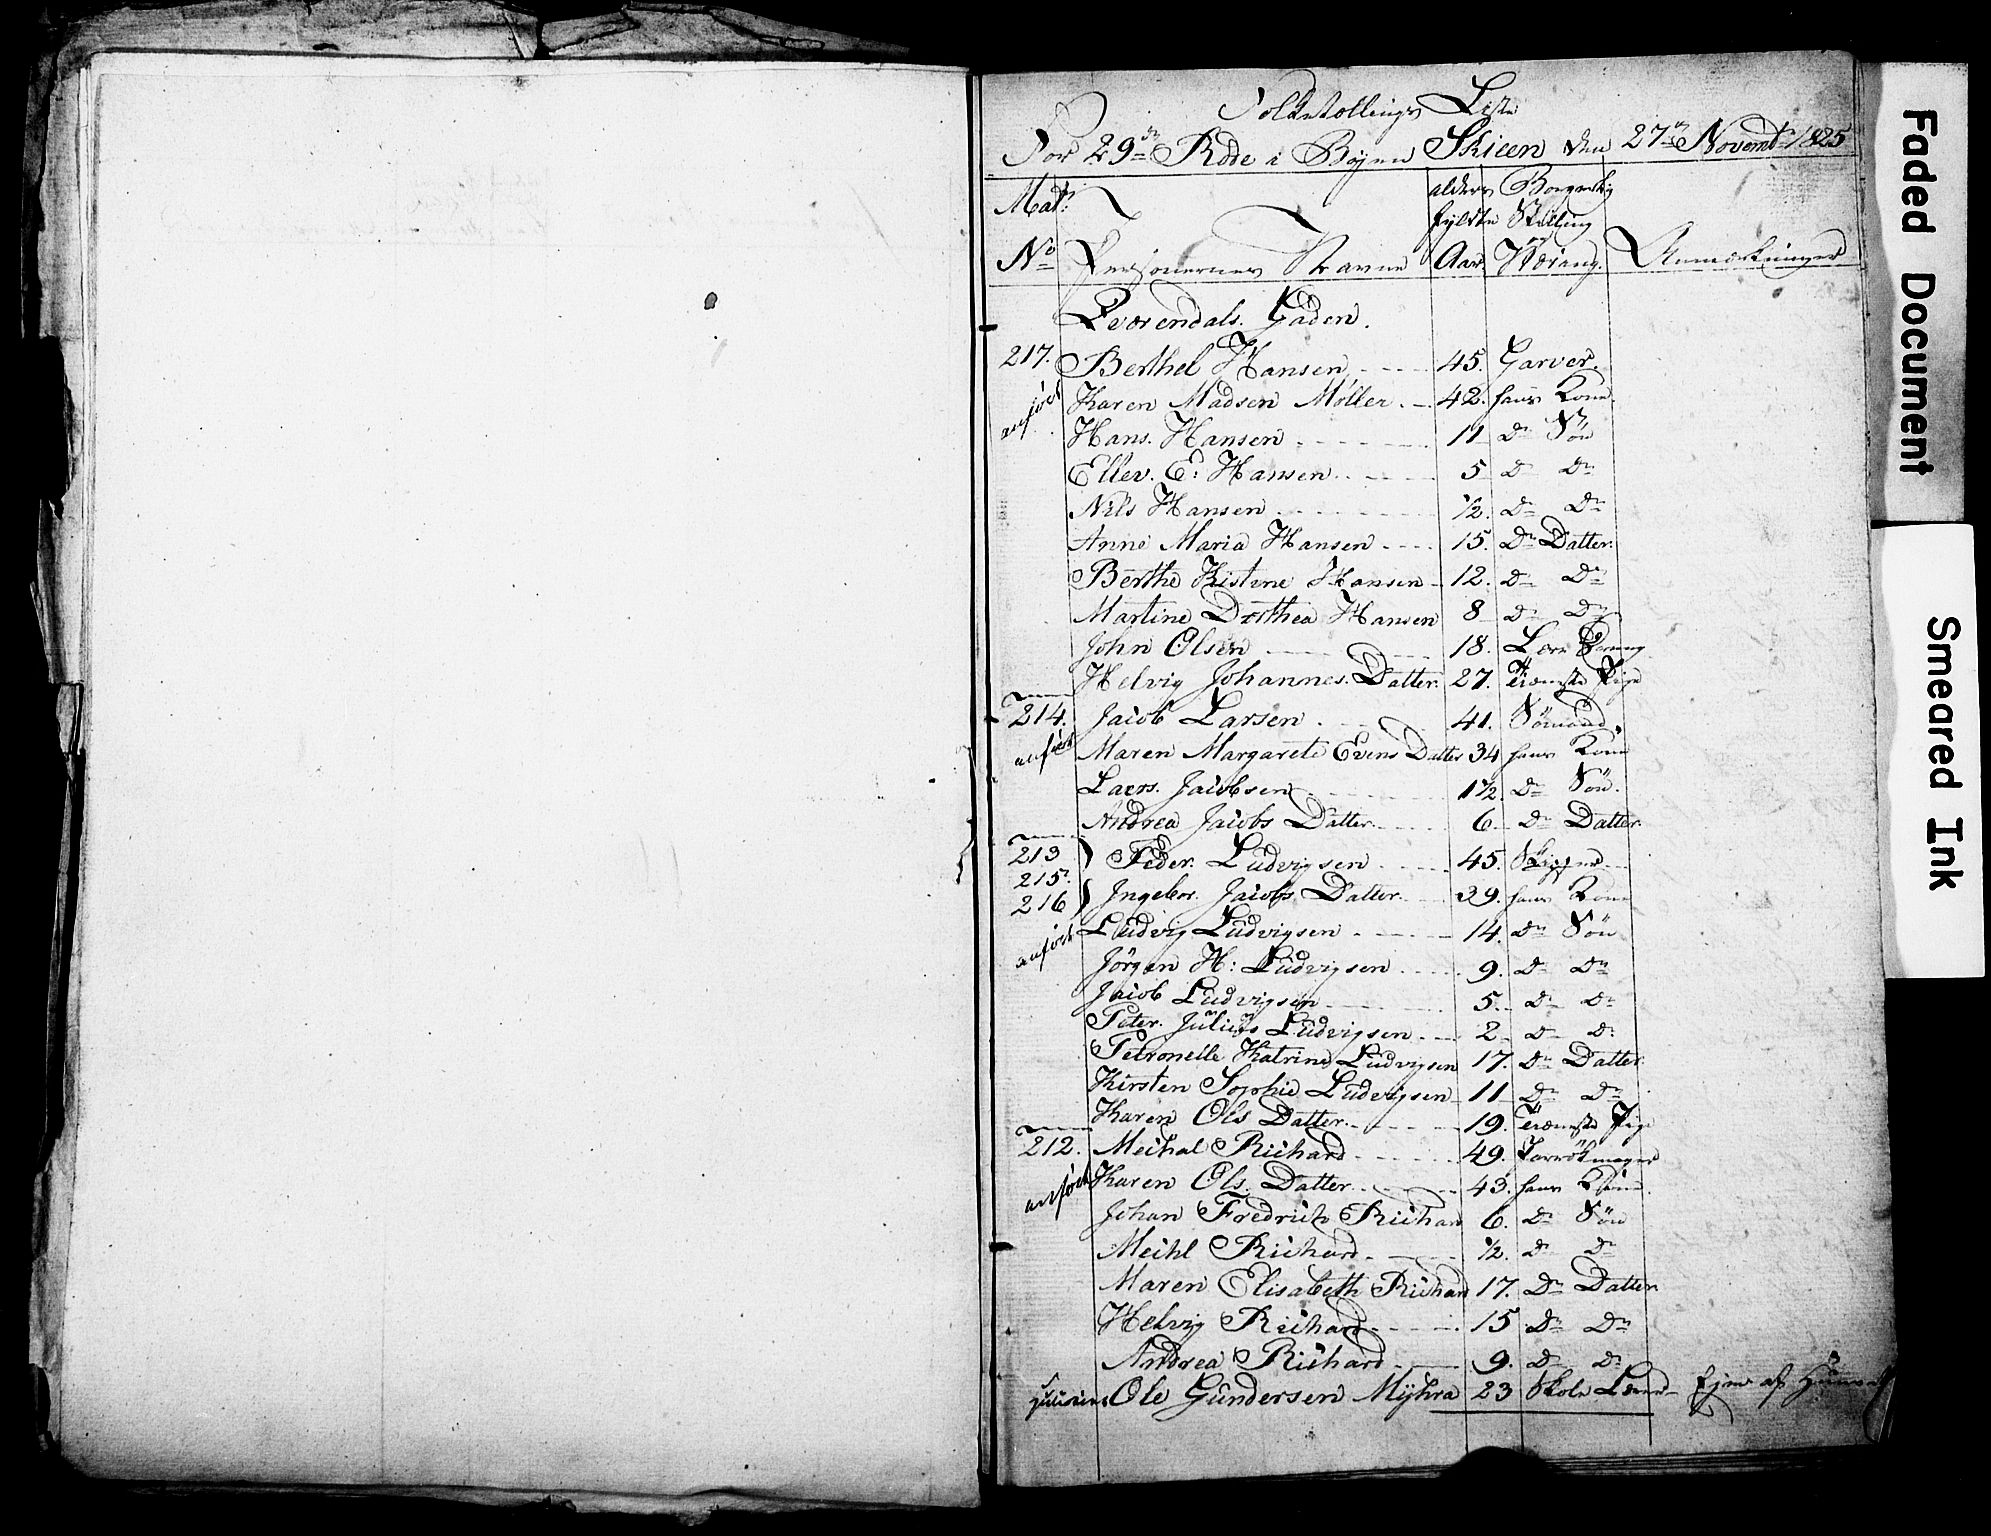 Folketællings Liste
For 29de Rode i Byen Skieen den 27de Novembr 1825
Matr: No Personernes Navne alders fyldte Aar Borgerlig Stilling Næring. Anmærkninger
Gaden.
217. Berthel Hansen 45. Garver.
anført Karen Madsen Møller 42. hans Kone
Hans. Hansen 11 Do Søn
Ellev. E: Hansen 5 Do Do
Nils Hansen ½. Do Do
Anne Maria Hansen 15. Do Datter.
Berthe Kistine Hansen 12. Do Do
Martine Dorthea Hansen 8 Do Do
John Olsen 18. Lære Dreng
Helvig Johannes. Datter. 27. Tieneste Pige
214. Jacob Larsen 41. Sømand.
anført Maren Margarete Evens Datter 34 hans Kone
Lars. Jacobsen 1½. Do Søn.
Andrea Jacobs Datter 6 Do Datter.
213 Peder. Ludvigsen 45. Skipper
215.
216 Ingebor. Jacobs Datter. 39. hans Kone
anført Ludvig Ludvigsen 14. Do Søn
Jørgen H: Ludvigsen 9. Do Do
Jacob Ludvigsen 5. Do Do
Peter. Julius Ludvigsen 2 Do Do
Petronelle Katrine Ludvigsen 17. Do Datter.
Kirsten Sophie Ludvigsen 11 Do Do
Karen Ols Datter. 19. Tieneste Pige
212. Meichal Richard 49. Parrökmager
anført Karen Ols. Datter 43. hans Kone.
Johan Fredrich Richard 6. Do Søn
Meihl Richard ½. Do Do
Maren Elisabeth Richard 17. Do Datter.
Helvig Richard 15 Do Do
Andrea Richard 9. Do Do
Ole Gundersen Myhra 23 Skole Lærer
Faded Document
Smeared Ink